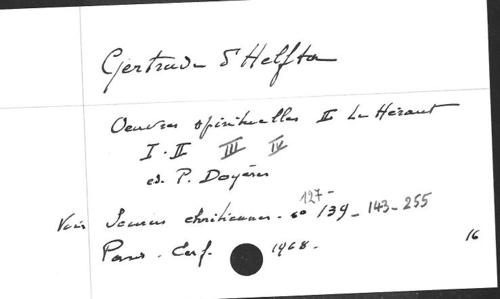 Gertrude d'Helfta
Oeuvres spirituelles II Le Héraut
I.II III IV
ed. P. Doyère
127-
Voir Sources chrétiennes - no 139-143-255
Paris. Cerf. 1968.
16